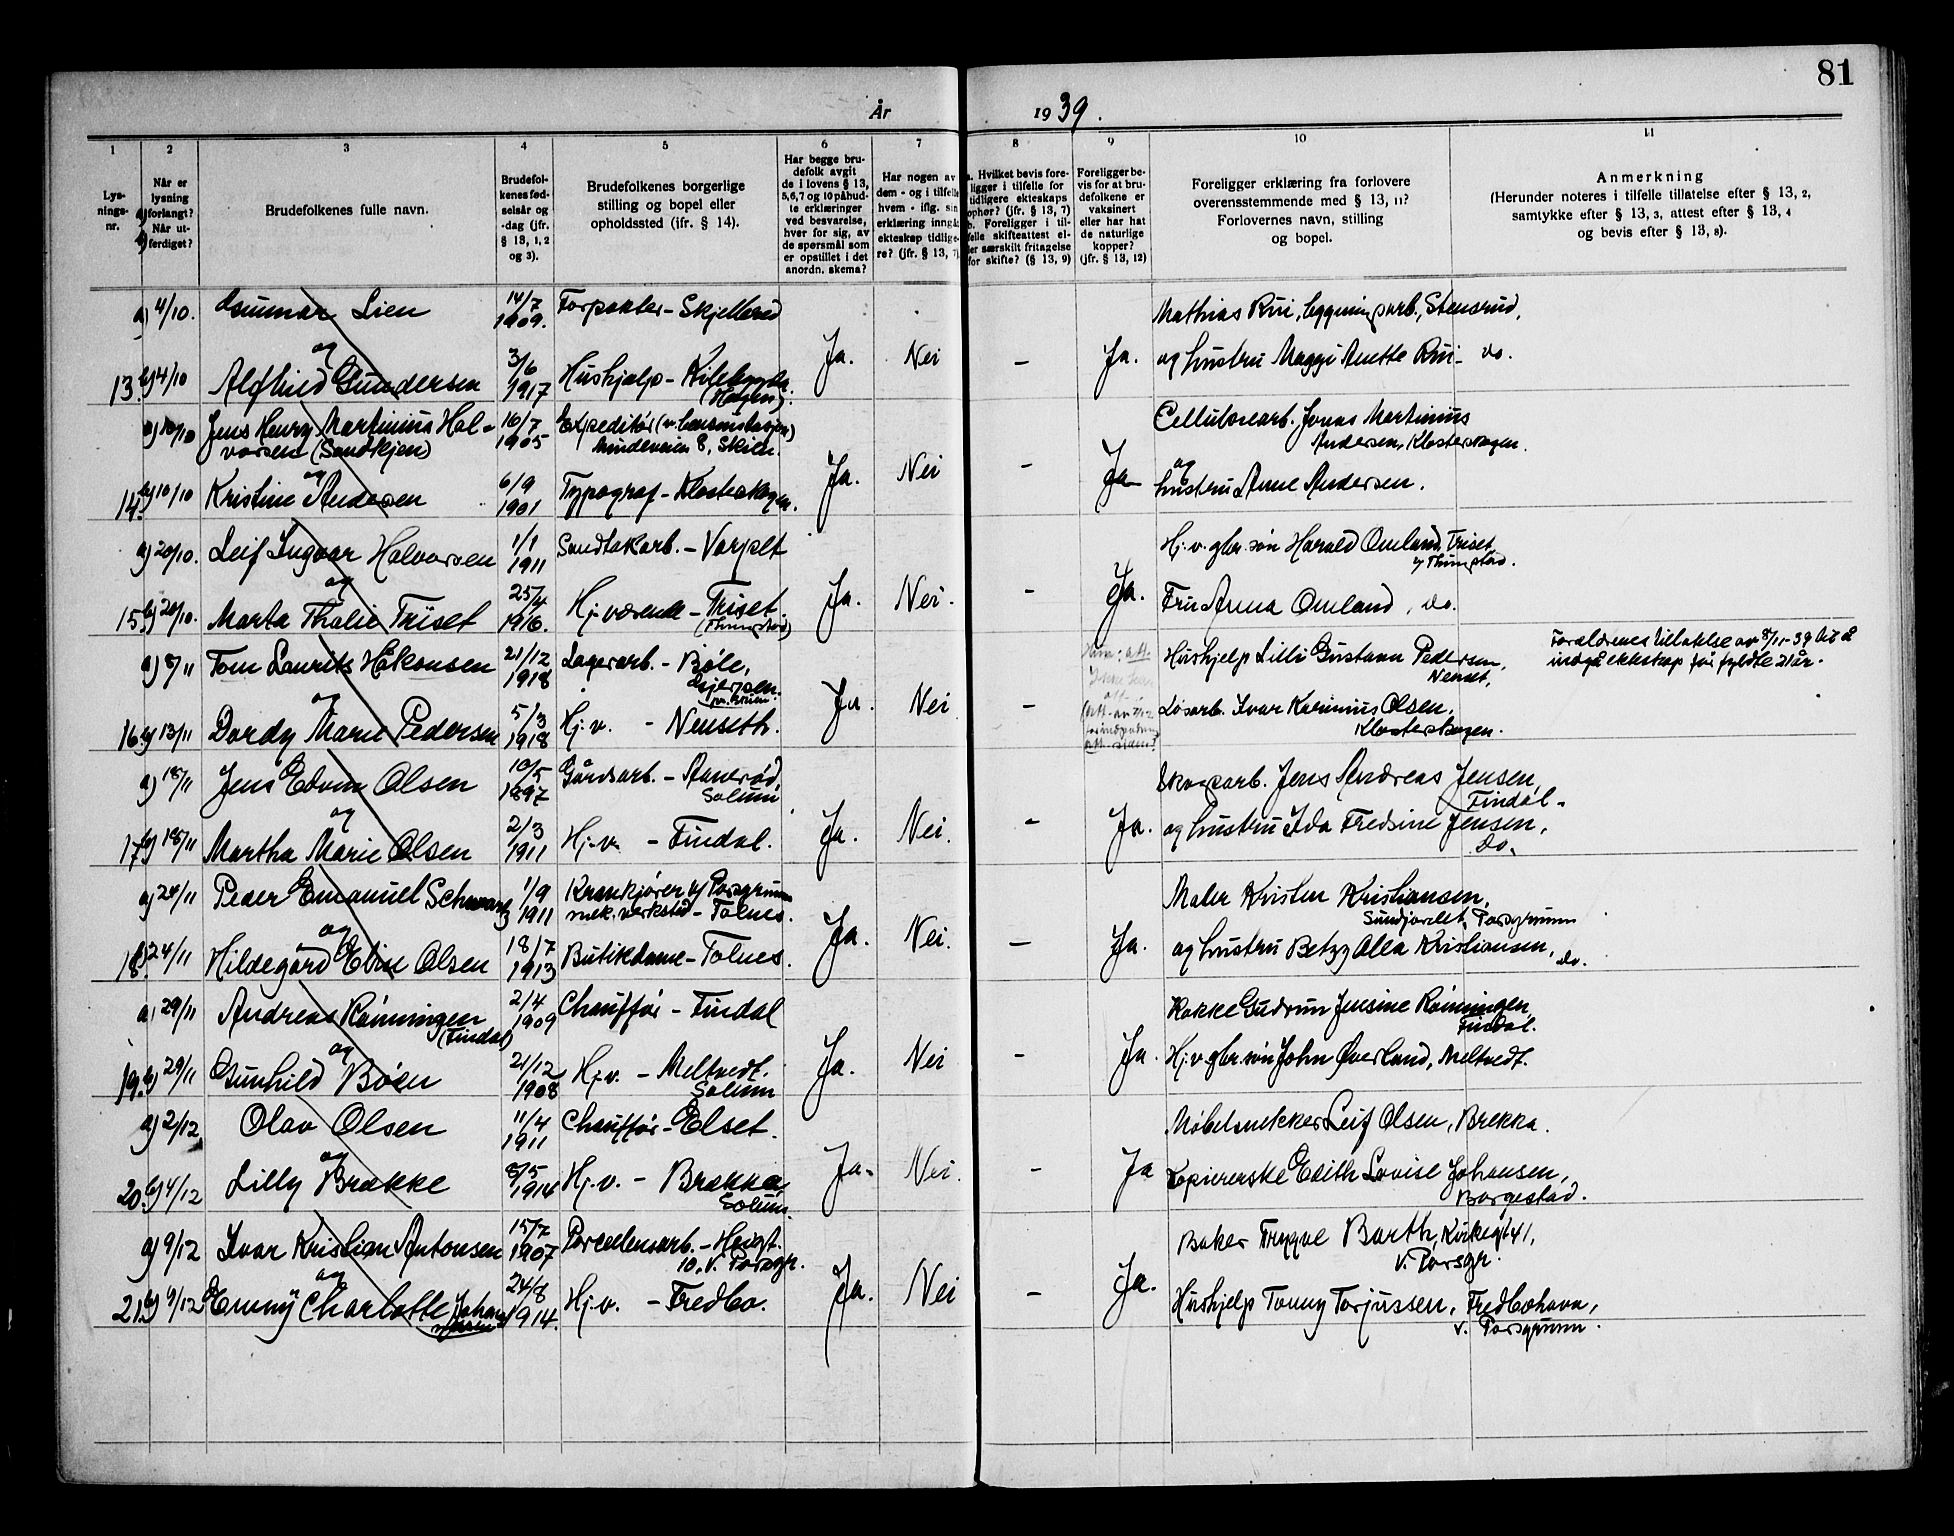 81
År 1939.
1 2 3 4 5 6 7 8 9 10 11
Lys-
nings-
nr.
Når er
lysning
a) forlangt?
b) Når ut-
ferdiget?
Brudefolkenes fulle navn.
Brudefol-
kenes fød-
selsår og
-dag (jfr.
§ 13, 1, 2
og 3).
Brudefolkenes borgerlige
stilling og bopel eller
opholdssted (ifr. § 14).
Har begge bru-
defolk avgit
de i lovens § 13,
5,6,7 og 10 påbud-
te erklæringer
ved besvarelse,
hver for sig, av
de spørsmål som
er opstillet i det
anordn. skema?
Har nogen av
dem - og i tilfelle
hvem - iflg. sin
erklæring inngå
ekteskap tidlige-
re? (jfr. § 13, 7)
a. Hvilket bevis fore-
ligger i tilfelle for
tidligere ekteskaps
ophør? (jfr. § 13, 7)
b. Foreligger i til-
felle skifteattest el-
ler særskilt fritagelse
for skifte? (§ 13, 9)
Foreligger be-
vis for at bru-
defolkene er
vaksinert
eller har hat
de naturlige
kopper?
(jfr. § 13, 12)
Foreligger erklæring fra forlovere
overensstemmende med § 13, 11?
Forlovernes navn, stilling
og bopel.
Anmerkning
(Herunder noteres i tilfelle tillatelse efter § 13, 2,
samtykke efter § 13, 3, attest efter § 13, 4
og bevis efter § 13, 8).
a) 4/10. Gunnar Lien 14/7 1909. Forpakter - Skjelbred Mathias Rui, byggningsarb., Stensrud,
og
13. b) 4/10 Alfhild Gundersen 3/6 1917 Hushjelp - Kilebygda Ja. Nei - Ja. og hustru Maggi Anette Rui - do.
(Holjen).
a) 10/10 Jens Henry Martinius Hal- 16/7 1905 Expeditør Cellulosearb. Jonas Martinius
vorsen (Sandkjen) 8, Skien. Andersen, Klosterskogen.
og
14. b) 10/10 Kristine Andersen 6/9 1901 Typograf - Klosterskogen. Ja. Nei - Ja og hustru Anne Andersen.
a) 20/10. Leif Ingvar Halvorsen 1/1 1911 Sandtakarb. - Vorjelt Hj. v. gbr. søn Harald Omland, Triset
og
15. b) 20/10. Marta Thalie Triset 25/4 1916. Hj. værende - Triset. Ja. Nei. - Ja. Fru Anna Omland, do.
a) 8/11 Tom Laurits Håkonsen 21/12 1918 Lagerarb. - Bøle, Hushjelp Lilli Gustava Pedersen, Forældrenes tillatelse av 8/11-39 til å
Gjerpen. Nenset, indgå ekteskap før fyldte 21 år.
pr. Skien.
og
16. b) 13/11 Dordy Marie Pedersen 5/3 1918 Hj. v. - Nenseth. Ja. Nei - Løsarb. Ivar Karinius Olsen,
Klosterskogen.
a) 18/11 Jens Edvin Olsen 10/5 1897 Gårdsarb. - Aanerød, Skogsarb. Jens Andreas Jensen,
Solum Findal -
og
17. b) 18/11 Martha Marie Olsen 2/3 1911 Hj. v. - Findal. Ja. Nei. - Ja. og hustru Ida Fredsine Jensen,
do.
a) 24/11 Peder Emanuel Schwartz 1/9 1911 Krankjører v/ Porsgrunn Maler Kristen Kristiansen,
mek. verksted - Tolnes. Sundjordet, Porsgrunn
og
18. b) 24/11 Hildegård Eline Olsen 18/7 1913 Butikdame - Tolnes. Ja. Nei. - Ja. og hustru Betzy Olea Kristiansen, do.
a) 29/11 Andreas Rønningen 2/4 1909 Chauffør - Findal Kokke Gudrun Jensine Rønningen,
(Findal) Findal.
og
19. b) 29/11 Gunhild Bøen 21/12 1908 Hj. v. - Meltvedt. Ja. Nei - Ja. Hj. v. gbr. søn John Øverland, Meltvedt.
Solum
a) 2/12 Olav Olsen 11/4 1911 Chauffør - Elset. Møbelsnekker Leif Olsen, Brekka.
og
20. b) 4/12 Lilly Brække 8/5 1914 Hj. v. - Brekka Ja - Nei. - Ja Expiererske Edith Lovise Johansen,
Solum. Borgestad.
a) 9/12 Ivar Kristian Antonsen 15/7 1907 Porcellensarb. - Heigt. Baker Trygve Barth, Kirkegt 41,
10, V. Porsgr. V. Porsgr.
og
21. b) 9/12 Emmy Charlotte Johannessen 24/8 1914. Hj. v. - Fredbo. Ja. Nei - Ja. Hushjelp Tonny Torjussen, Fredbohavn,
v. Porsgrunn.